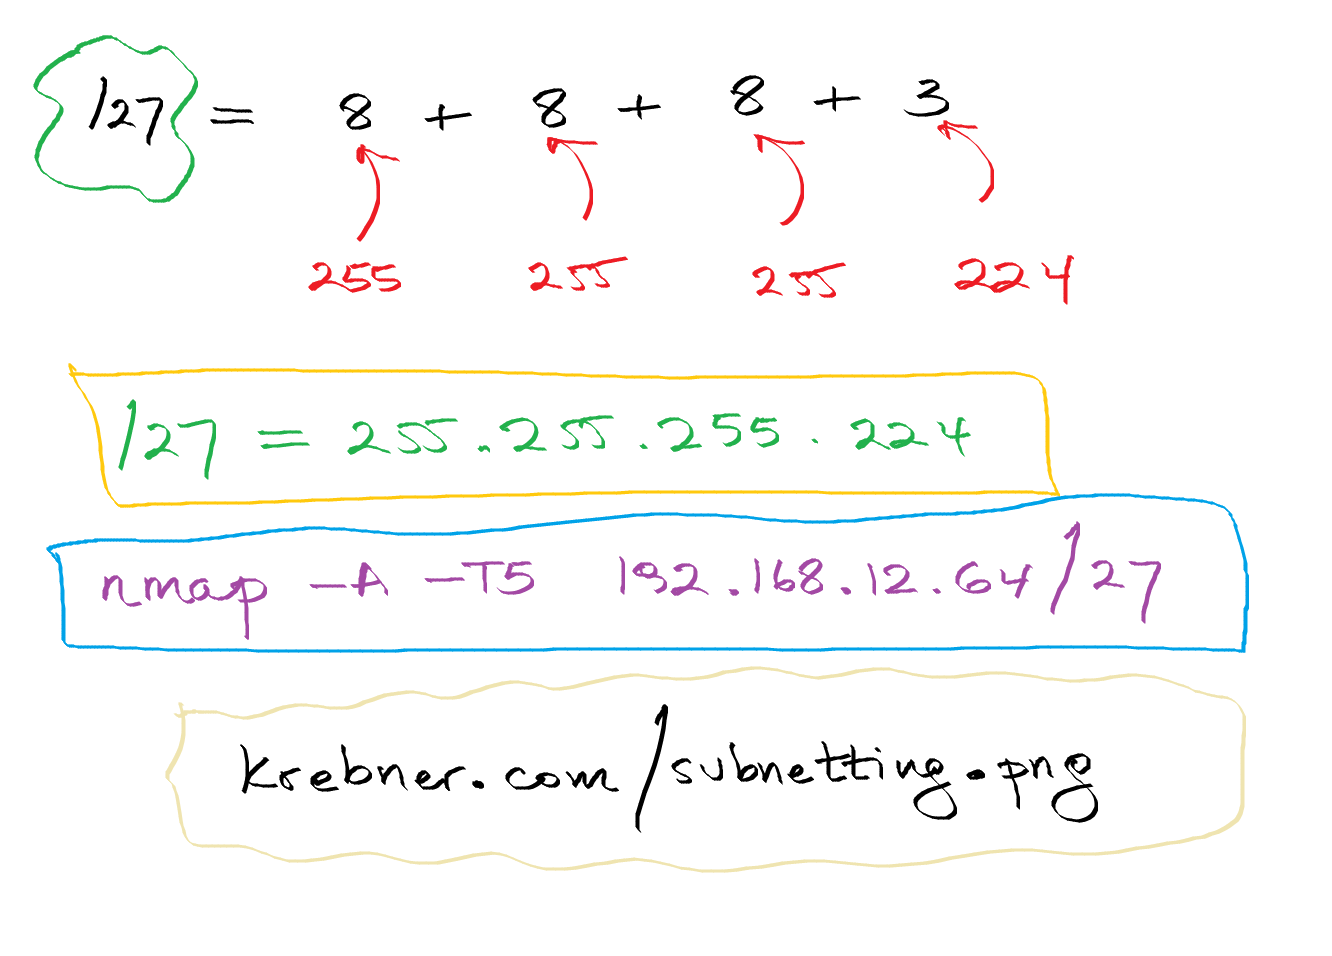 /27 = 8 + 8 + 8 + 3
255 255 255 224
/27 = 255.255.255.224
nmap -A -T5 192.168.12.64/27
krebner.com/subnetting.png